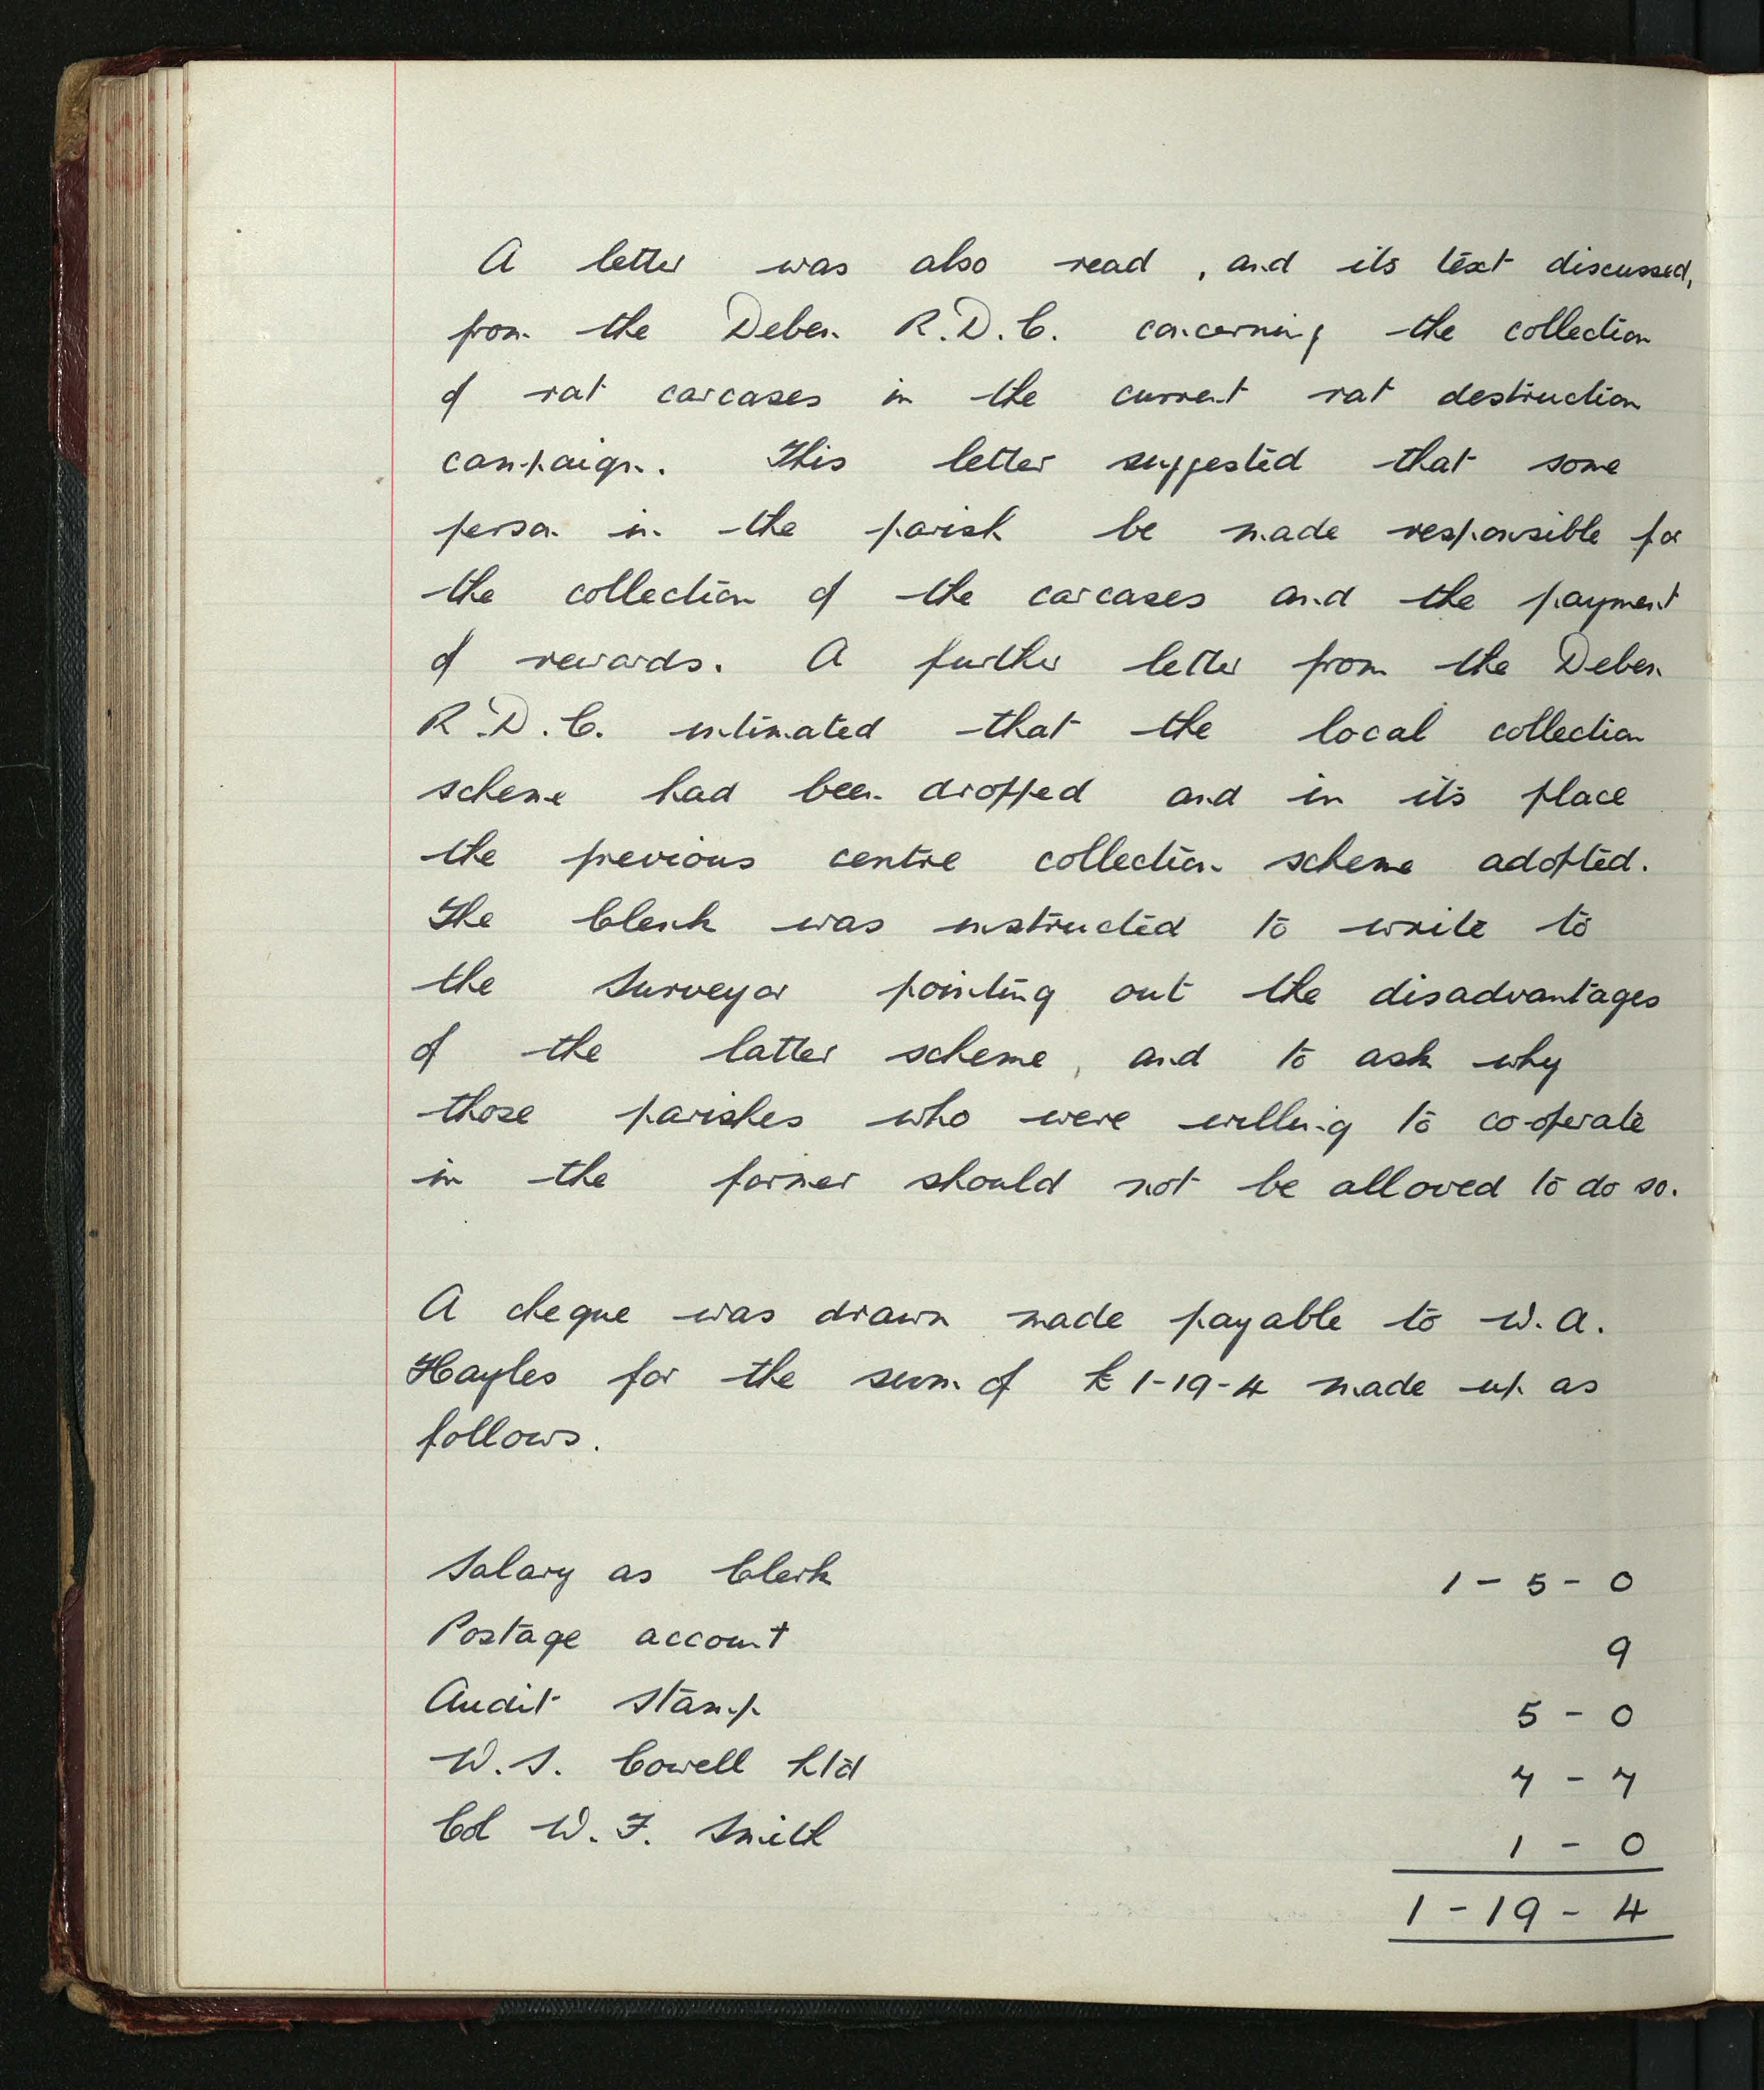 A letter was also read, and its text discussed,
from the Deben R.D.C. concerning the collection
of rat carcases in the current rat destruction
campaign. This letter suggested that some
person in the parish be made responsible for
the collection of the carcases and the payment
of rewards. A further letter from the Deben
R.D.C. intimated that the local collection
scheme had been dropped and in its place
the previous centre collection scheme adopted.
The Clerk was instructed to write to
the Surveyor pointing out the disadvantages
of the latter scheme, and to ask why
those parishes who were willing to co-operate
in the former should not be allowed to do so.
A cheque was drawn made payable to W.A.
Hayles for the sum of £1-19-4 made up as
follows.
Salary as Clerk 1 - 5 - 0
Postage account 9
Audit Stamp 5 - 0
W.S. Cowell Ltd 7 - 7
Col W.F. Smith 1 - 0
1 - 19 - 4